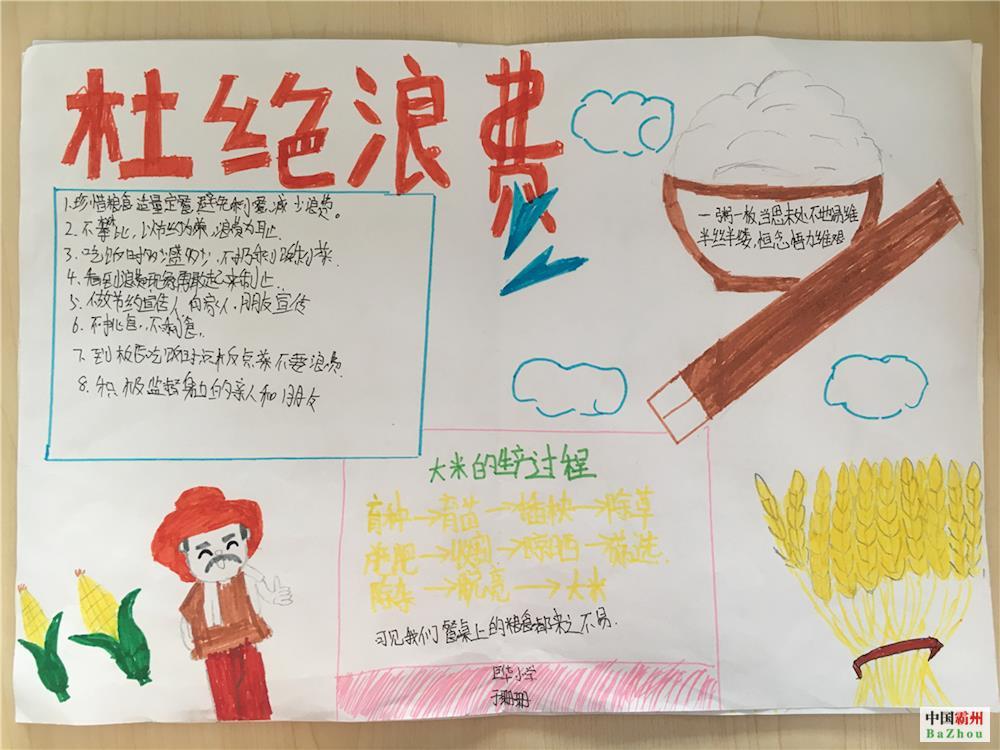 杜绝浪费
1.珍惜粮食适量定餐,避免剩餐减少浪费。
2.不攀比,以节约为荣,浪费为耻.
3.吃饭时吃多少盛多少,不扔剩饭剩菜.
4.看到浪费现象勇敢起来制止.
5.做节约宣告人,向家人,朋友宣传
6.不挑食,不剩食.
7.到饭店吃饭时点饭点菜不要浪费.
8.积极监督身边的亲人和朋友
一粥一饭,当思来处不
半丝半缕,恒念物力维艰
大米的生产过程
育种→育苗→插秧→除草
→收割→晾晒→筛选
除杂→脱壳→大米
可见我们餐桌上的粮食都来之不易.
小学
中国霸州
BaZhou